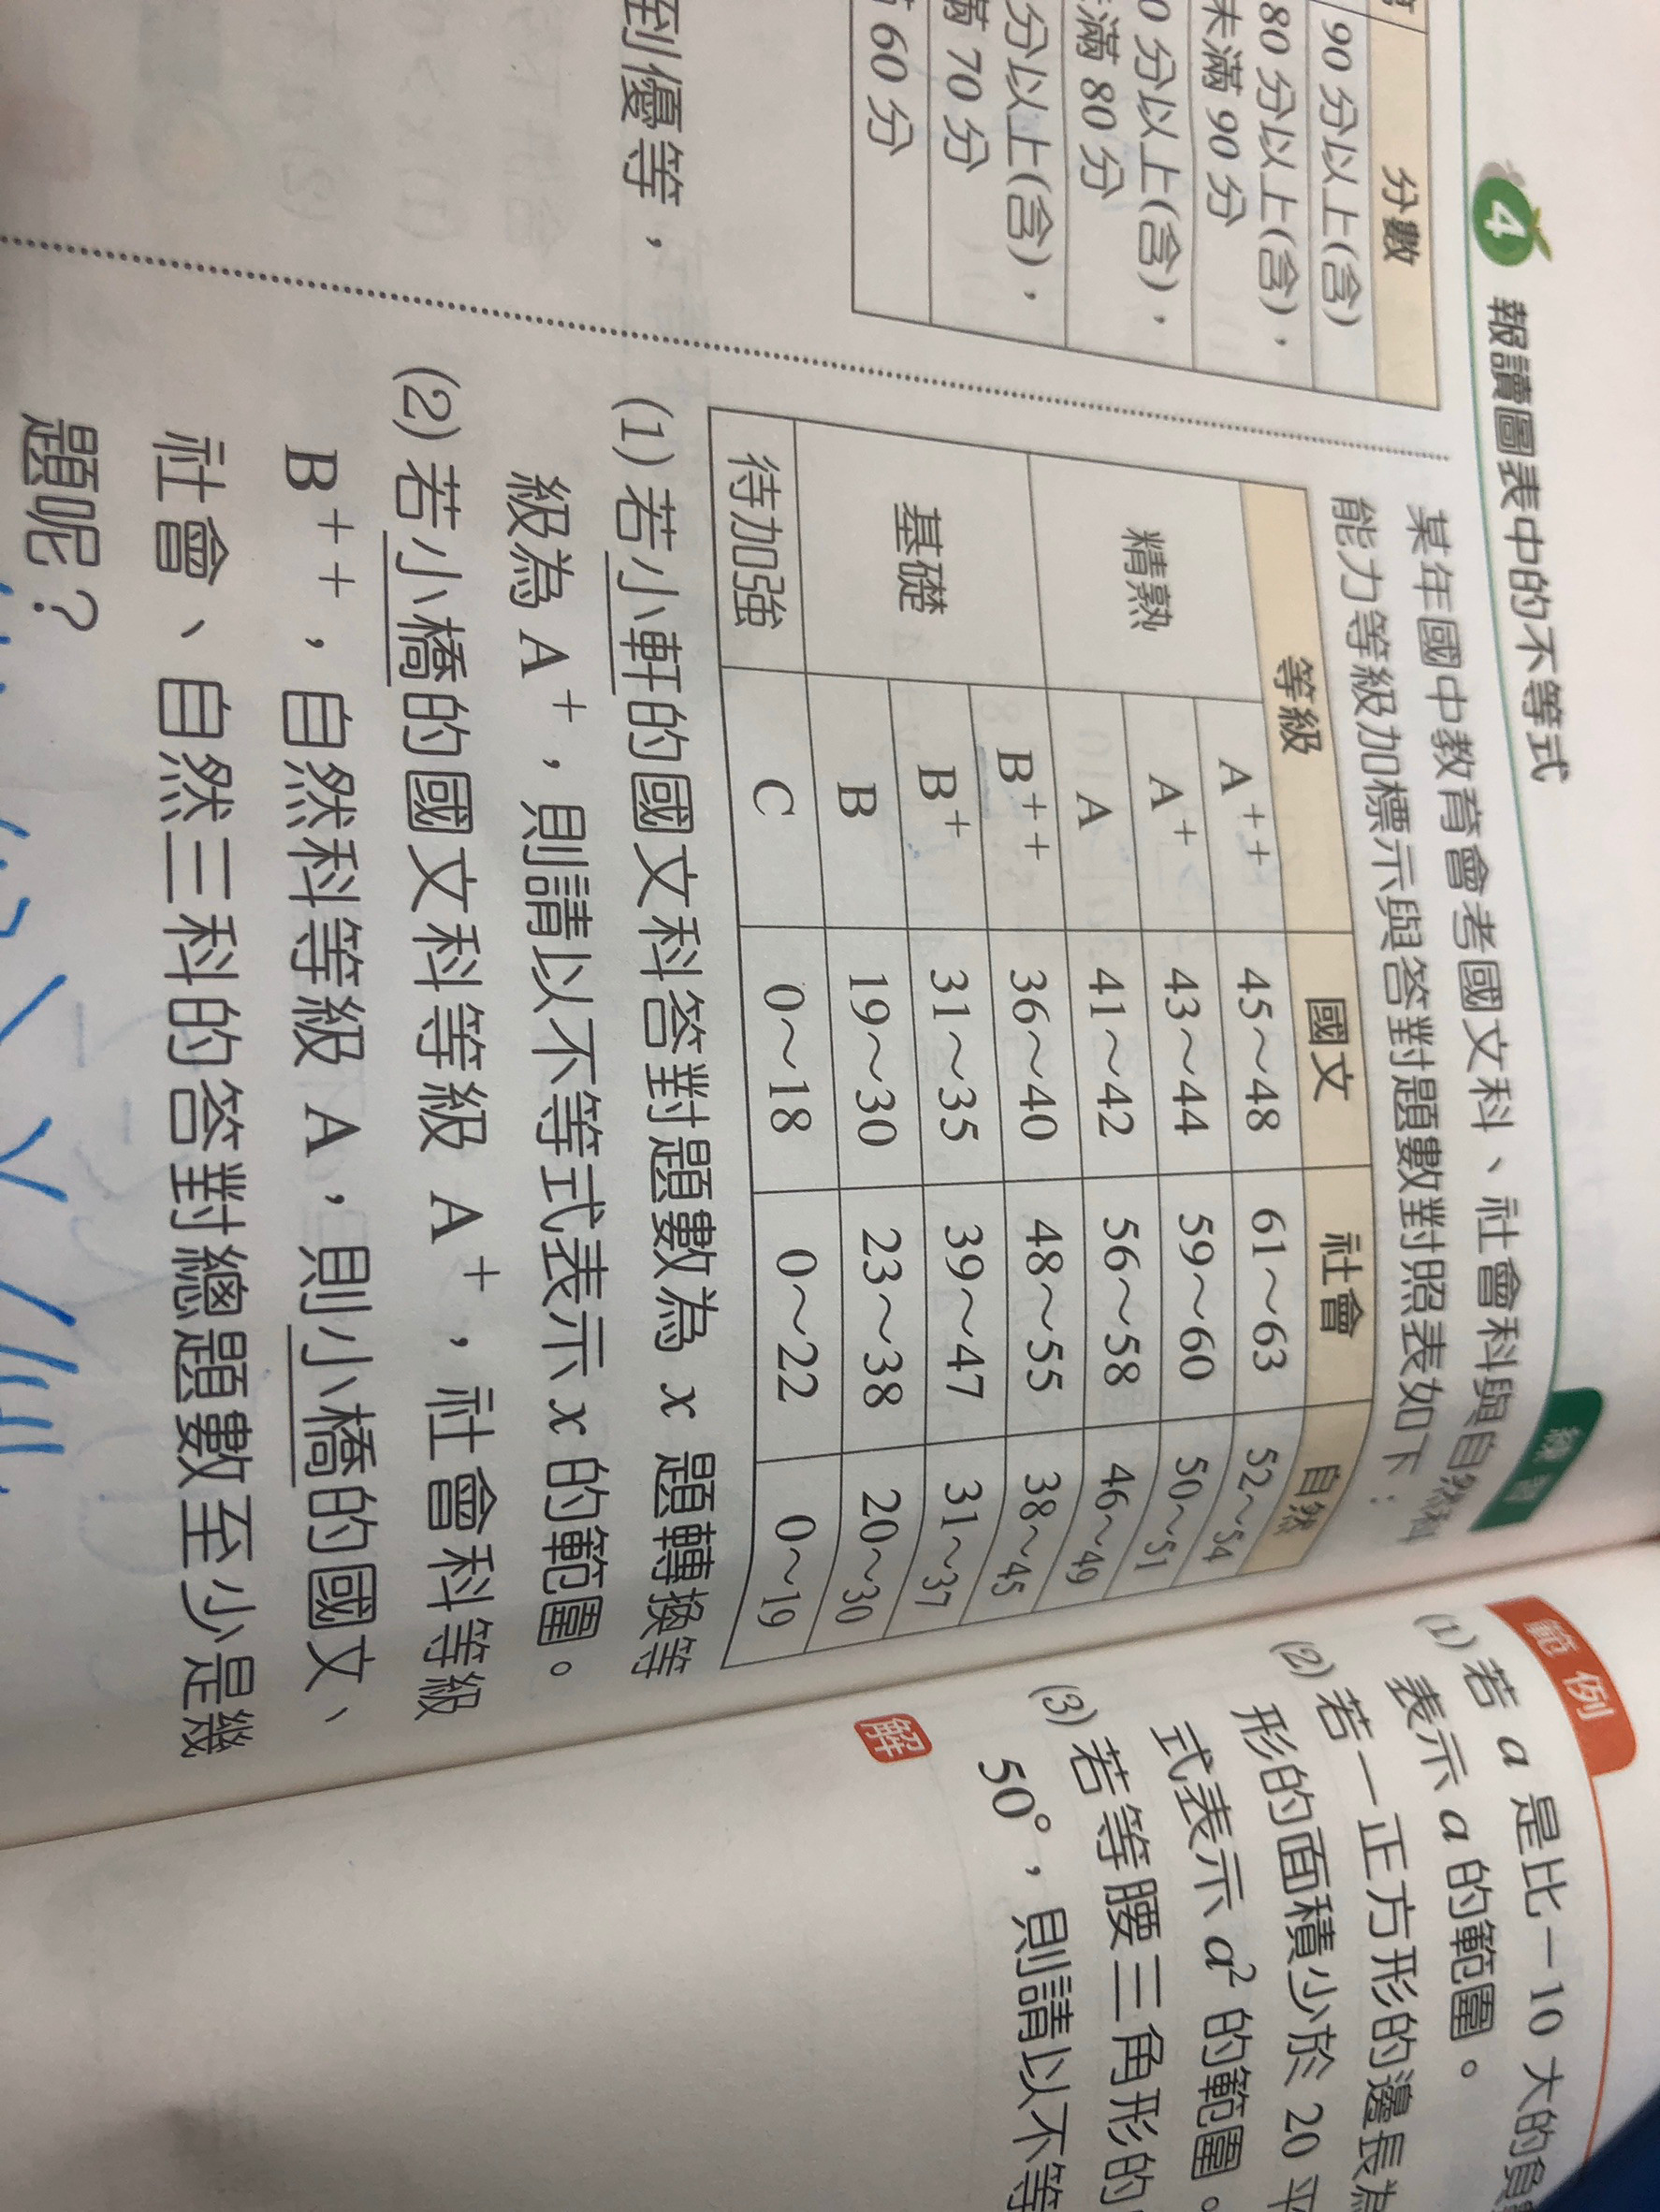 分數
90 分以上(含)
80 分以上(含),
未滿 90 分
0 分以上(含),
滿 80 分
分以上(含),
滿 70 分
60 分
到優等,
4 報讀圖表中的不等式
練習
某年國中教育會考國文科、社會科與自然科
能力等級加標示與答對題數對照表如下:
等級 國文 社會 自然
精熟 A++ 45~48 61~63 52~54
A+ 43~44 59~60 50~51
A 41~42 56~58 46~49
基礎 B++ 36~40 48~55 38~45
B+ 31~35 39~47 31~37
B 19~30 23~38 20~30
待加強 C 0~18 0~22 0~19
(1) 若小軒的國文科答對題數為 x 題轉換等
級為 A+,則請以不等式表示 x 的範圍。
(2) 若小橋的國文科等級 A+,社會科等級
B++,自然科等級 A,則小橋的國文、
社會、自然三科的答對總題數至少是幾
題呢?
範例
(1) 若 a 是比-10 大的負
表示 a 的範圍。
(2) 若一正方形的邊長為
形的面積少於 20 平
式表示 a² 的範圍。
(3) 若等腰三角形的
50°,則請以不等
解